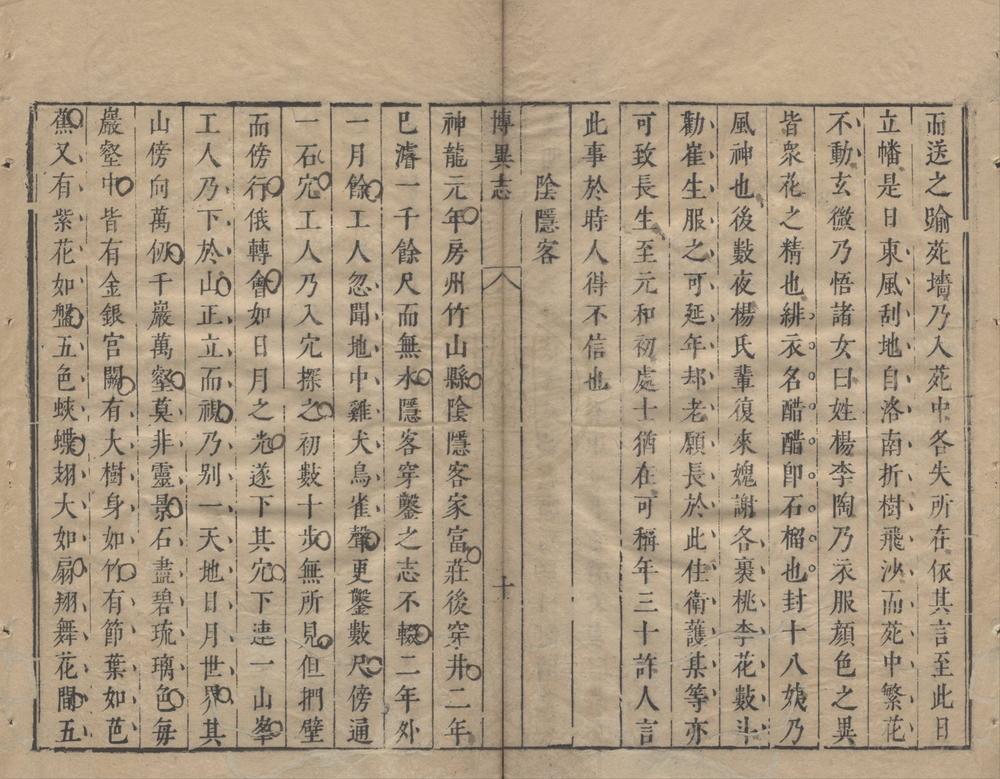 而送之踰苑墻乃入苑中各失所在依其言至此日
立幡是日東風刮地自洛南折樹飛沙而苑中繁花
不動玄微乃悟諸女曰姓楊李陶乃衣服顔色之異
皆衆花之精也緋衣名醋醋卽石榴也封十八姨乃
風神也後數夜楊氏輩復來媿謝各裹桃李花數斗
勸崔生服之可延年却老願長於此住衛護某等亦
可致長生至元和初處士猶在可稱年三十許人言
此事於時人得不信也
陰隱客
博異志
十
神龍元年房州竹山縣陰隱客家富莊後穿井二年
已濬一千餘尺而無水隱客穿鑿之志不輟二年外
一月餘工人忽聞地中雞犬鳥雀聲更鑿數尺傍通
一石穴工人乃入穴探之初數十步無所見但捫壁
而傍行俄轉會如日月之光遂下其穴下連一山峯
工人乃下於山正立而視乃别一天地日月世界其
山傍向萬仞千巖萬壑莫非靈景石盡碧琉璃色每
巖壑中皆有金銀宮闕有大樹身如竹有節葉如芭
蕉又有紫花如盤五色蛺蝶翅大如扇翔舞花間五